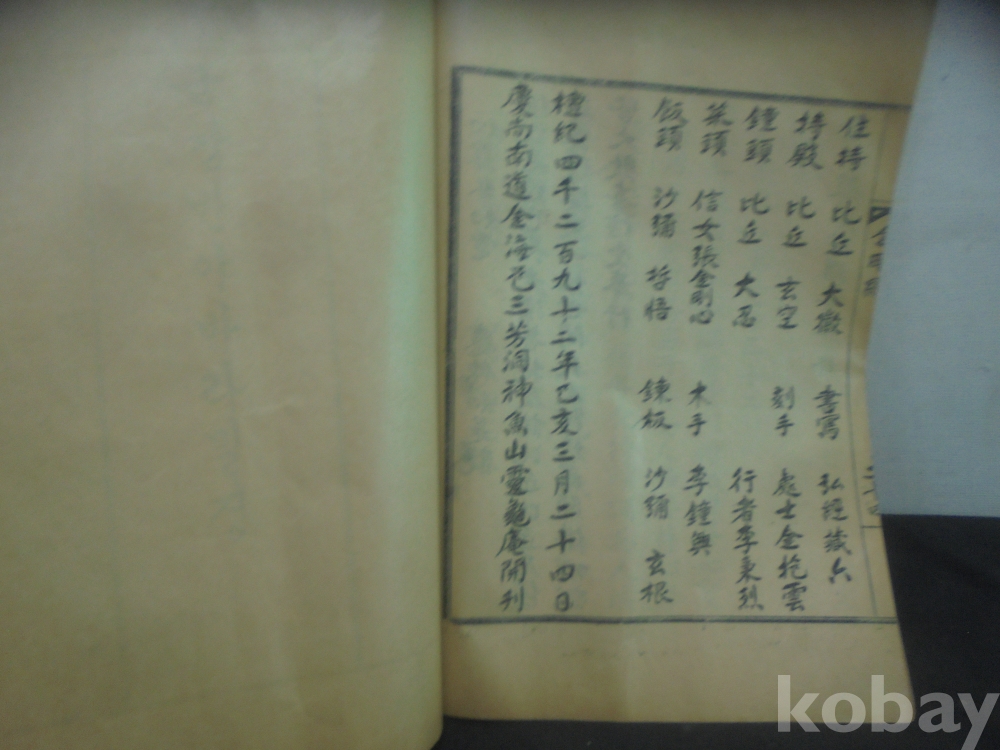 住持 比丘 大徽 書寫 弘經 苾㐪
持殿 比丘 玄空 刻手 處士 金抱雲
鐘頭 比丘 大忍 行者 李秉烈
菜頭 信女 張金剛心 木手 李鍾興
飯頭 沙彌 哲悟 鍊板 沙彌 玄根
檀紀四千二百九十二年己亥三月二十四日
慶尚南道金海邑三芳洞神魚山靈龜庵開刊
kobay